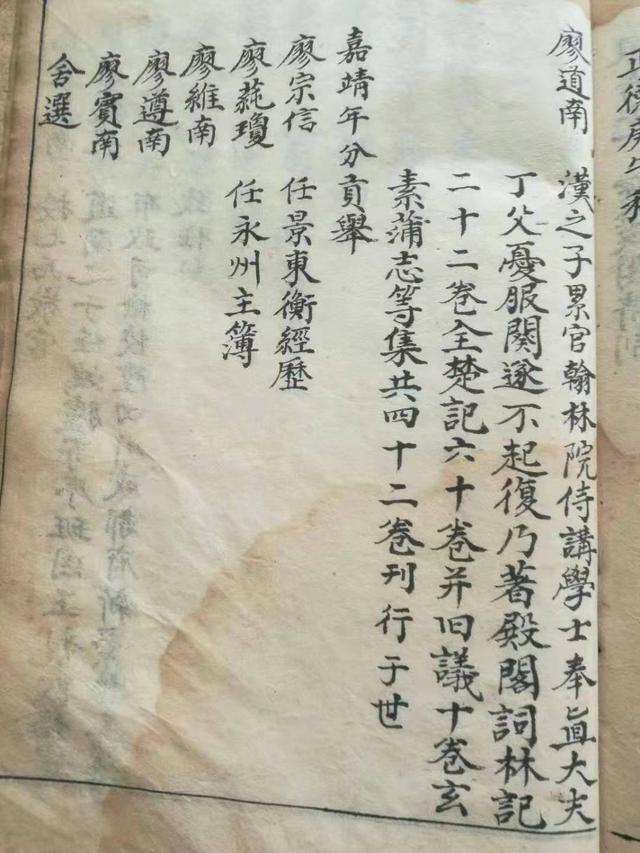 廖道南
漢之子累官翰林院侍講學士奉直大夫
丁父憂服闋遂不起復乃著殿閣詞林記
二十二卷全楚記六十卷并旧議十卷玄
素蒲志等集共四十二卷刊行于世
嘉靖年分貢舉
廖宗信 任景東衛經歷
廖蒓瓊 任永州主簿
廖維南
廖遵南
廖賓南
舍選